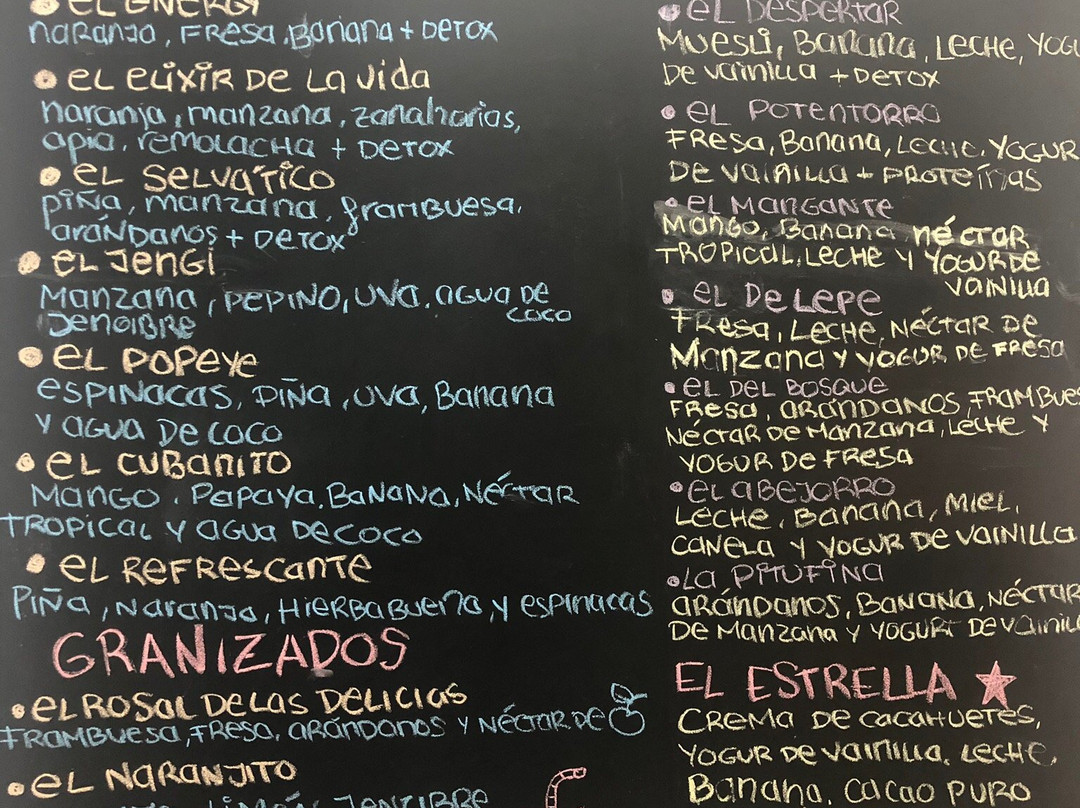 EL ENERGI
naranja, Fresa, Banana + Detox
EL ELIXIR DE La vida
naranja, manzana, zanahorias,
apia, remolacha + Detox
EL SELVÁTICO
piña, manzana, frambuesa,
arándanos + Detox
EL JENGI
Manzana, pepino, uva, agua de
coco
Jengibre
EL POPEYE
ESPINACAS, piña, uva, Banana
y agua De coco
EL CUBANITO
Mango, Papaya, Banana, Néctar
Tropical y agua De coco
EL REFRESCANTE
Piña, Naranja, Hierbabuena y espinacas
GRANIZADOS
EL ROSAL DE LAS DELICIAS
Frambuesa, Fresa, arándanos y néctar de
EL NARANJITO
Limón, Jengibre
EL DESPERTAR
Muesli, Banana, Leche, YOGU
De vainilla + DETOX
EL POTENTORRO
Fresa, Banana, Leche, YOGUR
De vainilla + PROTEÍNAS
EL MANGANTE
Mango, Banana néctar
TROPICAL, LECHE Y YOGUR DE
vainilla
EL DE LEPE
Fresa, Leche, Néctar de
Manzana y yogur de fresa
EL DEL BOSQUE
Fresa, arándanos, FRAMBUES
Néctar de Manzana, Leche y
yogur de fresa
EL ABEJORRO
Leche, Banana, Miel,
Canela y yogur de vainilla
LA PITUFINA
arándanos, Banana, Néctar
De Manzana y yogurt de vainill
EL ESTRELLA
CREMA DE cacahuetes,
yogur de vainilla, leche,
Banana, cacao puro